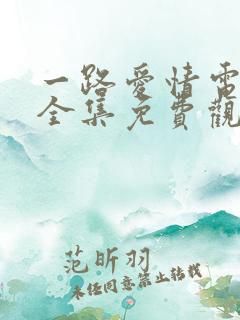 一路愛情電
全集免費觀
范昕羽
未经同意禁止转载